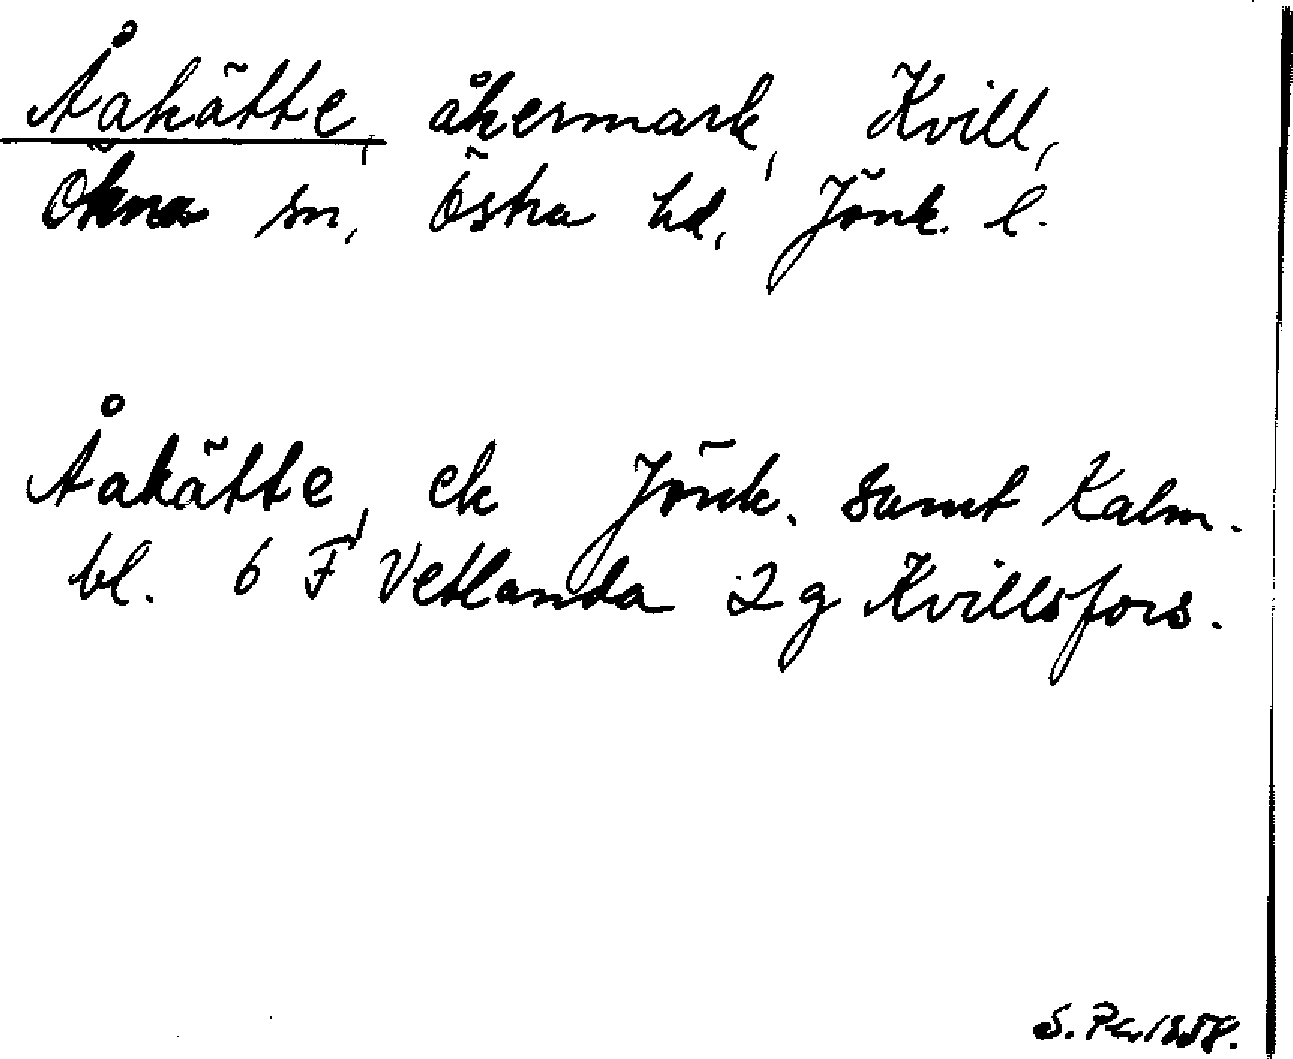 Åakätte, åkermark, Kvill,
Ökna sn, Östra hd, Jönk. l.
Åakätte, ek Jönk. samt Kalm.
bl. 6 F Vetlanda 2 g Kvillsfors.
S. Pn. 1958.